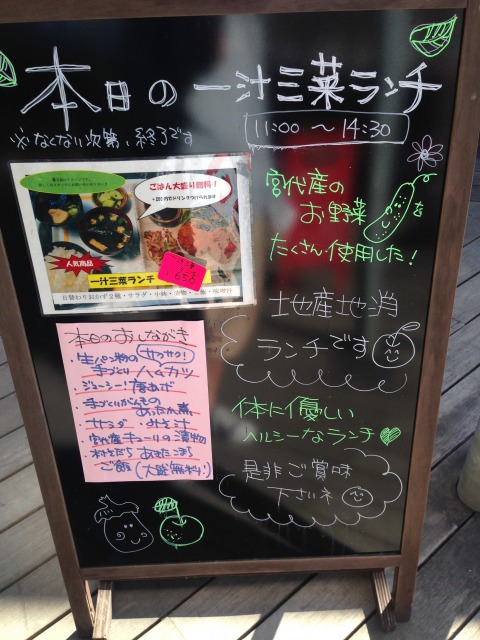 本日の一汁三菜ランチ
※なくなり次第、終了です
11:00 〜 14:30
ごはん大盛り無料！
人気商品
一汁三菜ランチ
日替わりおかず2種・サラダ・小鉢・漬物・ご飯・味噌汁
宮代産の
お野菜を
たくさん使用した！
地産地消
ランチです
体に優しい
ヘルシーなランチ
是非ご賞味
下さいネ
本日のおしながき
・生パン粉のサクサク！
手づくりハムカツ
・ジューシー！唐あげ
・手づくりがんもの
あったか煮
・サラダ ・みそ汁
・宮代産キューリの漬物
ご飯（大盛無料！）